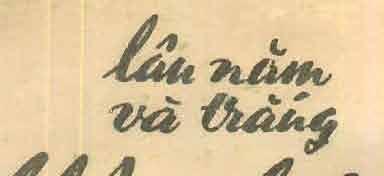 lâu năm
và trắng